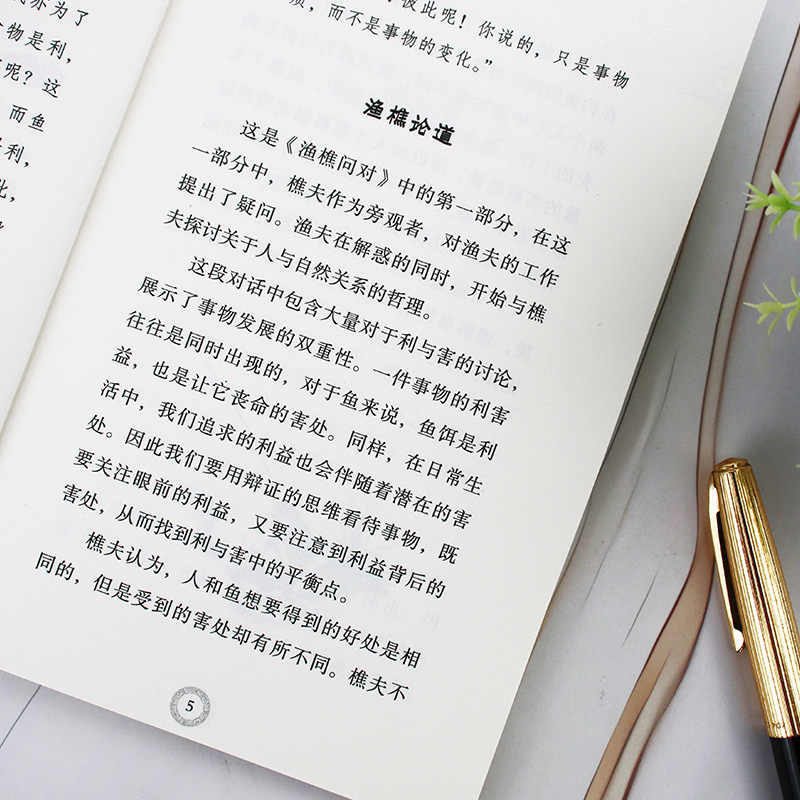 亦为了
物是利，
呢？这
而鱼
利，
此，
彼此呢！你说的，只是事物
质，而不是事物的变化。”
渔樵论道
这是《渔樵问对》中的第一部分，在这
一部分中，樵夫作为旁观者，对渔夫的工作
提出了疑问。渔夫在解惑的同时，开始与樵
夫探讨关于人与自然关系的哲理。
这段对话中包含大量对于利与害的讨论，
展示了事物发展的双重性。一件事物的利害
往往是同时出现的，对于鱼来说，鱼饵是利
益，也是让它丧命的害处。同样，在日常生
活中，我们追求的利益也会伴随着潜在的害
处。因此我们要用辩证的思维看待事物，既
要关注眼前的利益，又要注意到利益背后的
害处，从而找到利与害中的平衡点。
樵夫认为，人和鱼想要得到的好处是相
同的，但是受到的害处却有所不同。樵夫不
5